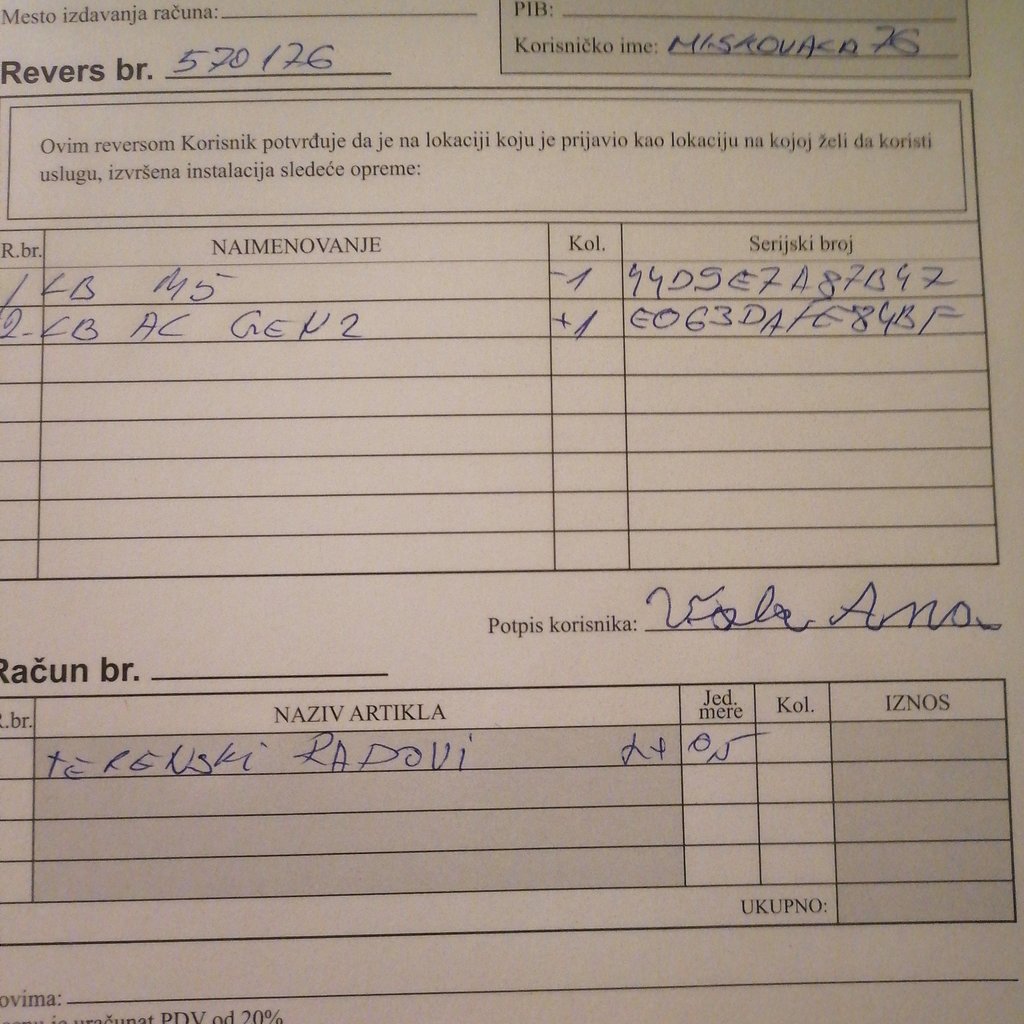 Mesto izdavanja računa:
PIB:
Korisničko ime: MISKOVACA 76
Revers br. 570176
Ovim reversom Korisnik potvrđuje da je na lokaciji koju je prijavio kao lokaciju na kojoj želi da koristi
uslugu, izvršena instalacija sledeće opreme:
R.br. NAIMENOVANJE Kol. Serijski broj
1 LB M5 -1 44D9E7A87B47
2- LB AC GEN2 +1 E063DAFE84BF
Potpis korisnika: Ana
Račun br.
R.br. NAZIV ARTIKLA Jed. mere Kol. IZNOS
TERENSKI RADOVI
UKUPNO:
ovima:
je uračunat PDV od 20%